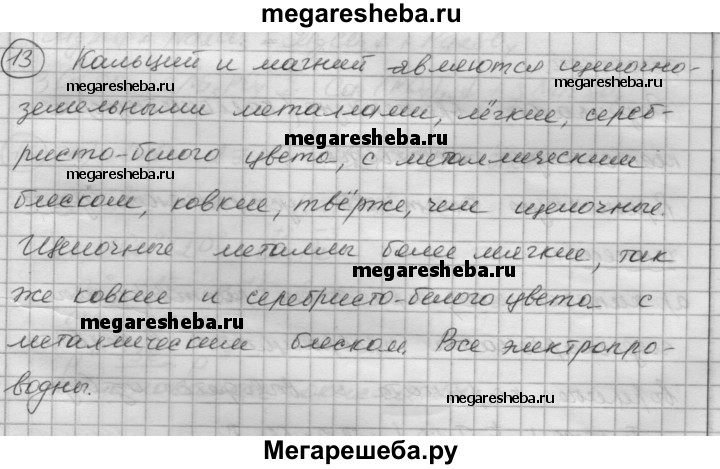 megaresheba.ru
13 Кальций и магний являются щелочно-
megaresheba.ru
megaresheba.ru
земельными металлами, лёгкие, сереб-
megaresheba.ru
ристо-белого цвета, с металлическим
megaresheba.ru
блеском, ковкие, твёрже, чем щелочные.
Щелочные металлы более мягкие, так
megaresheba.ru
же ковкие и серебристо-белого цвета с
megaresheba.ru
металлическим блеском. Все электропро-
водны.
megaresheba.ru
Мегарешеба.ру